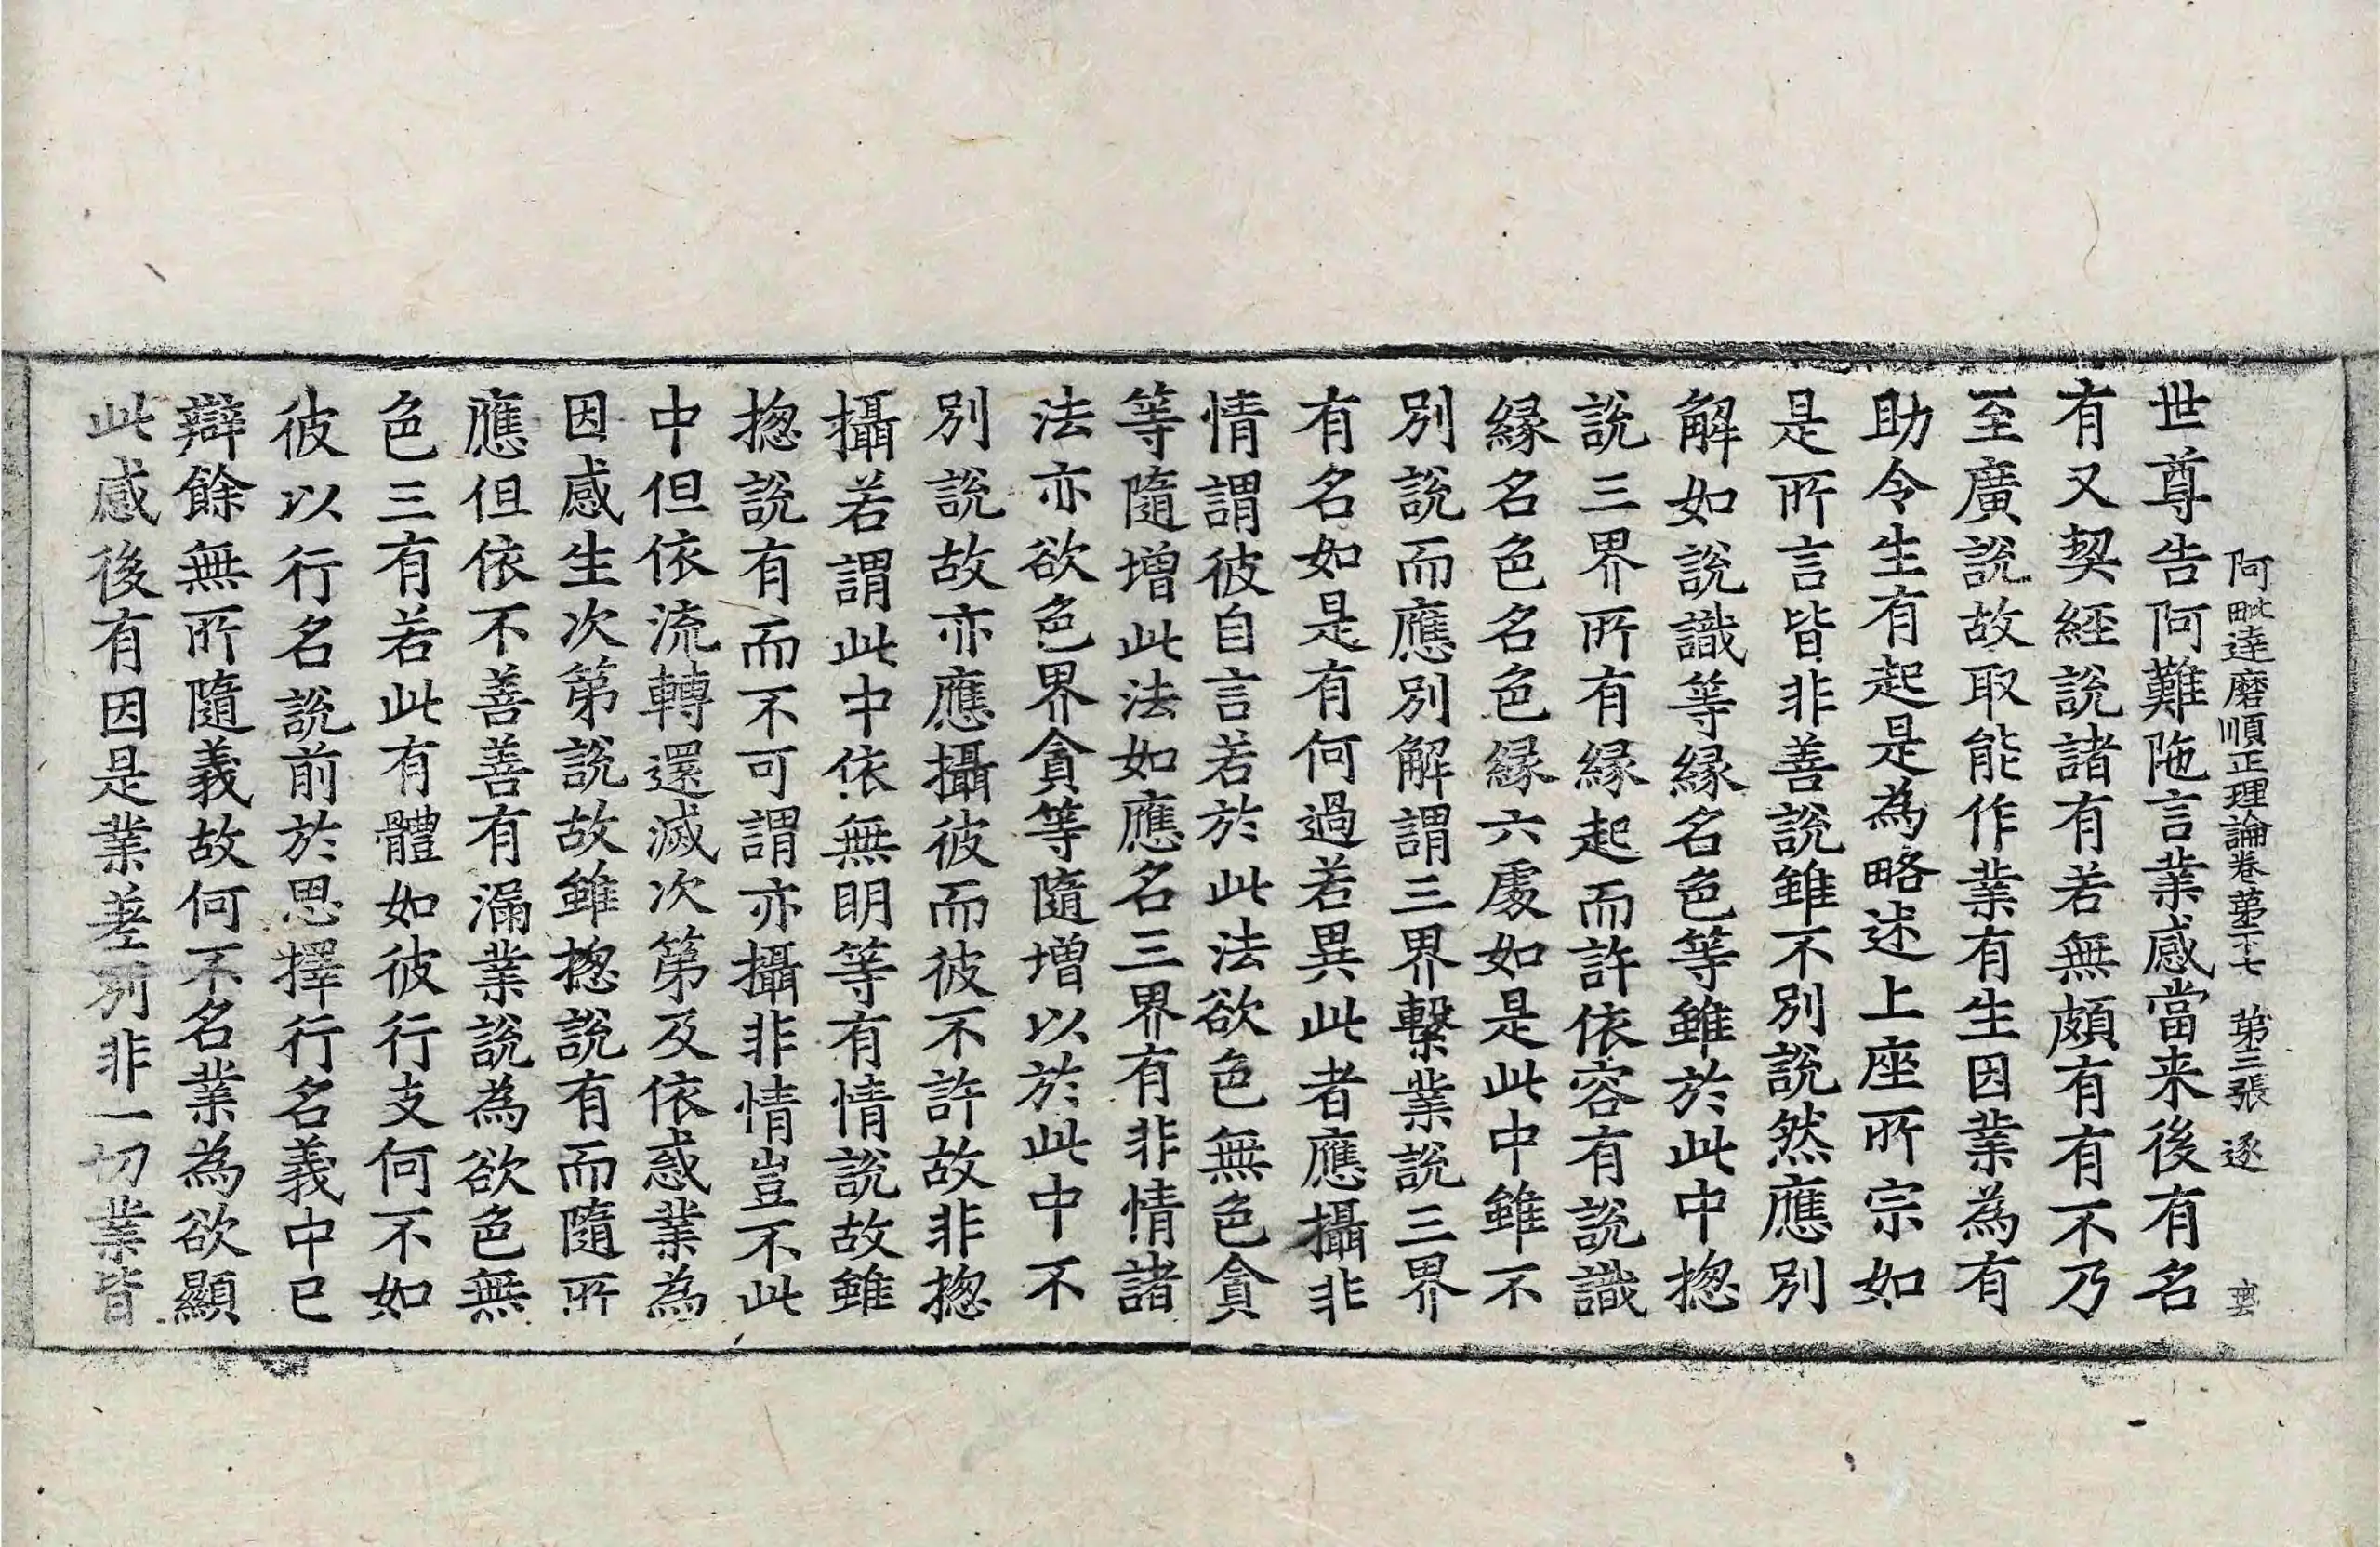 阿毗達磨順正理論卷第二十七 第三張 逐
世尊告阿難陁言業感當来後有名
有又契經說諸有若無頗有有不乃
至廣說故取能作業有生因業為有
助令生有起是為略述上座所宗如
是所言皆非善說雖不別說然應別
解如說識等緣名色等雖於此中揔
說三界所有緣起而許依容有說識
緣名色名色緣六處如是此中雖不
別說而應別解謂三界繫業說三界
有名如是有何過若異此者應攝非
情謂彼自言若於此法欲色無色貪
等隨增此法如應名三界有非情諸
法亦欲色界貪等隨增以於此中不
別說故亦應攝彼而彼不許故非揔
攝若謂此中依無明等有情說故雖
揔說有而不可謂亦攝非情豈不此
中但依流轉還滅次第及依惑業為
因感生次第說故雖揔說有而隨所
應但依不善善有漏業說為欲色無
色三有若此有體如彼行支何不如
彼以行名說前於思擇行名義中已
辯餘無所隨義故何不名業為欲顯
此感後有因是業差別非一切業皆